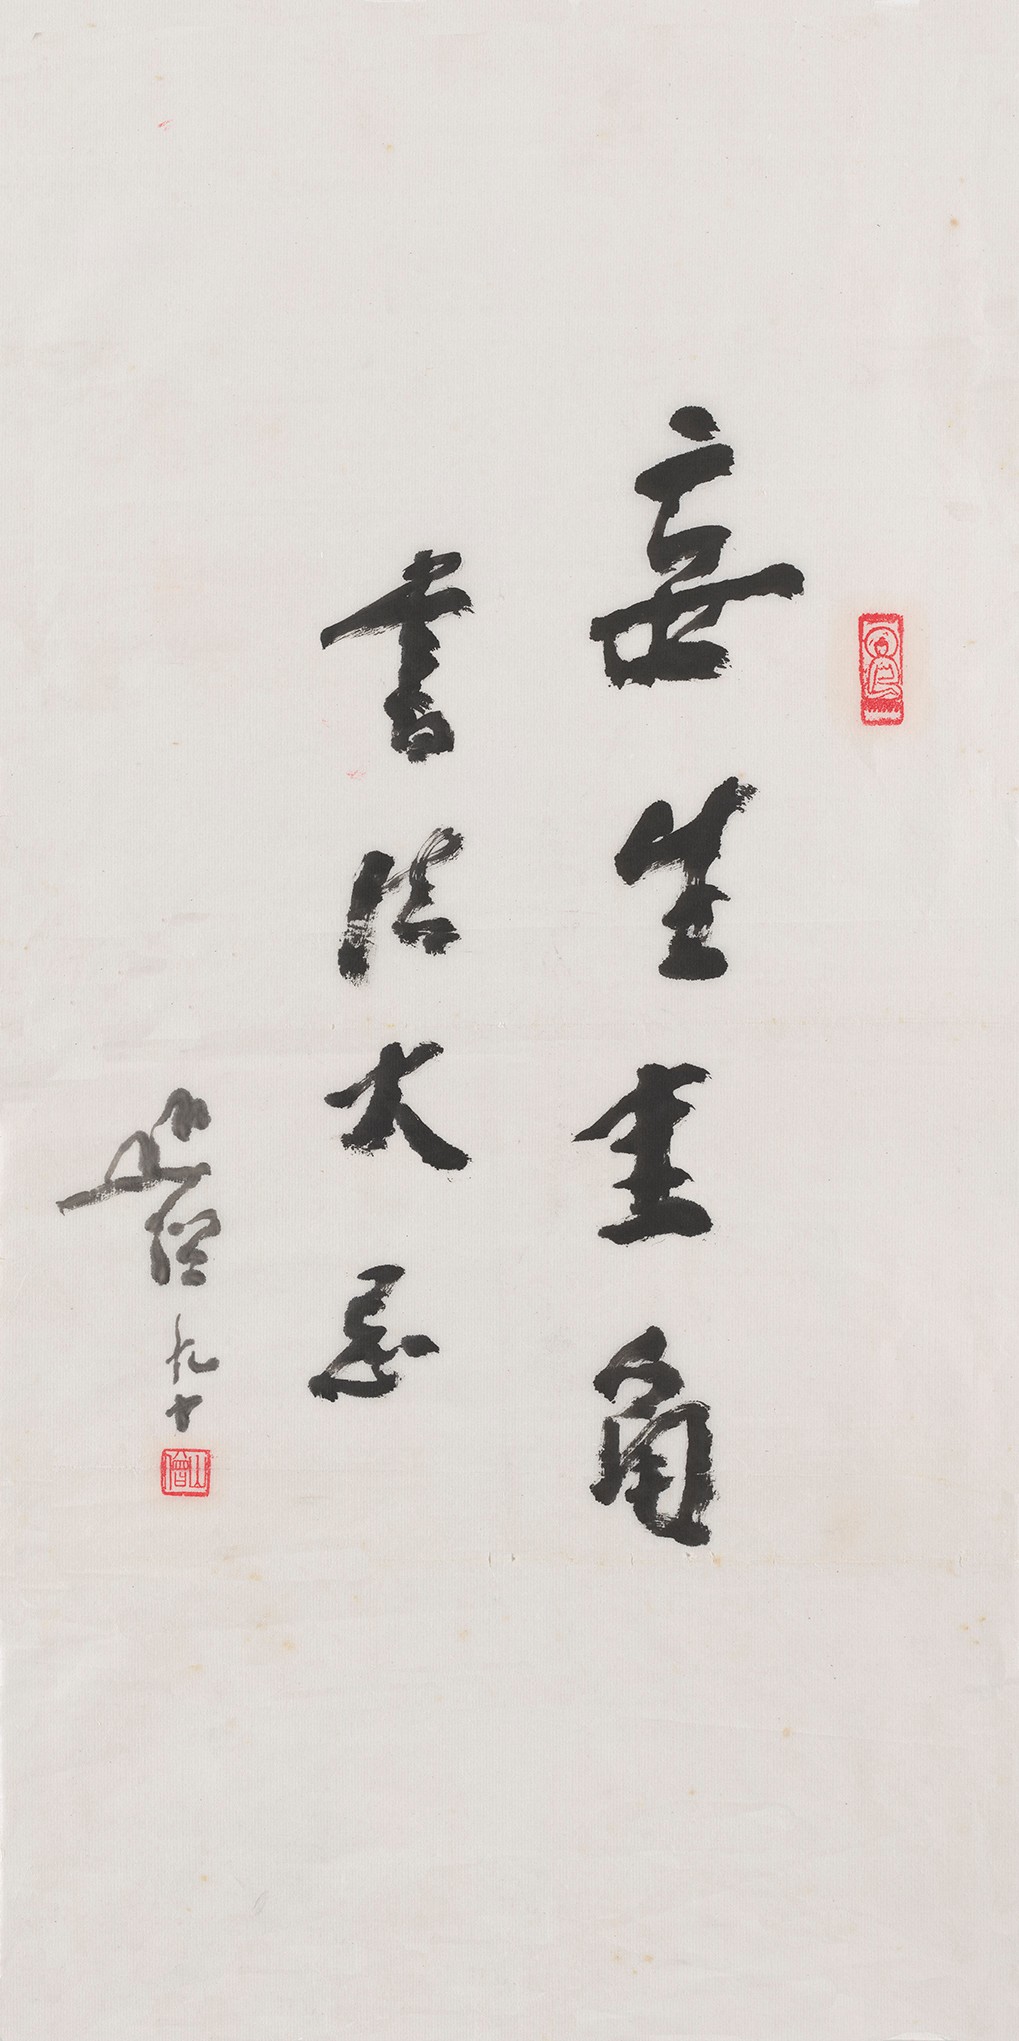 妄生圭角
書法大忌
九十
山僧